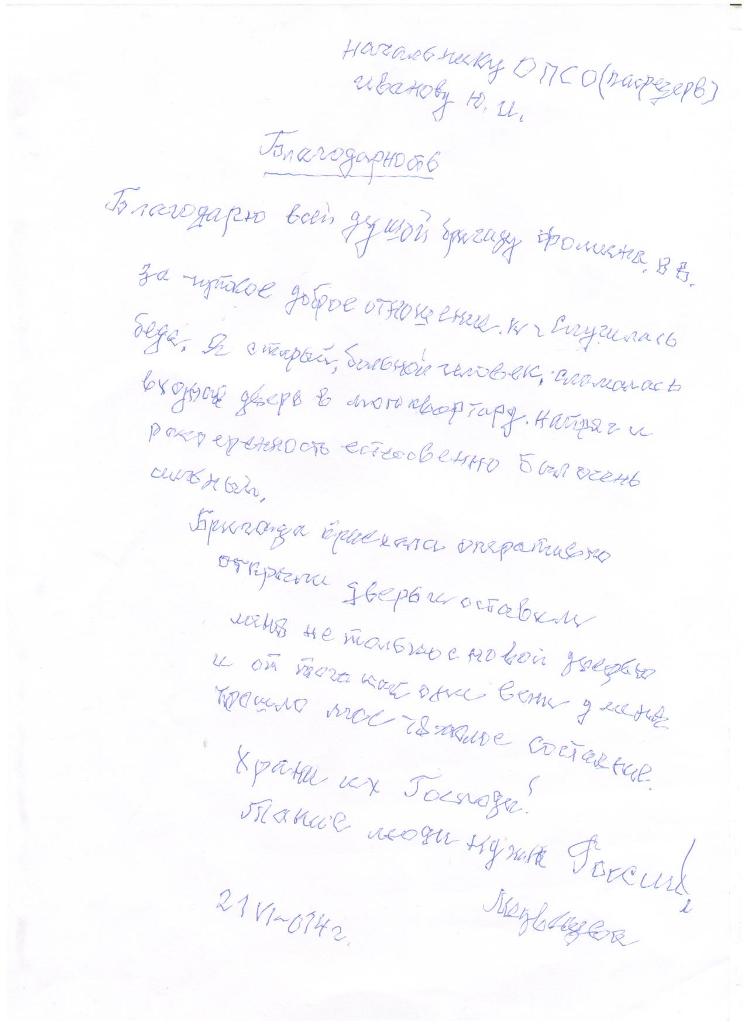 начальнику ОПСО (
Иванову Ю. И.
Благодарность
Благодарю всей душой бригаду Фомина В В.
за чуткое доброе отношение. Случилась
беда. Я старый, больной человек, сломалась
входная дверь в мою квартиру. Напряг и
растеренность естесвенно был очень
сильный.
Бригада приехала оперативно
открыли дверь и оставили
меня не только с новой дверью
и от того как они вели у меня
прошло мое тяжелое состаяние.
Храни их Господи!
Такие люди нужны России!
21 VI-014 г.